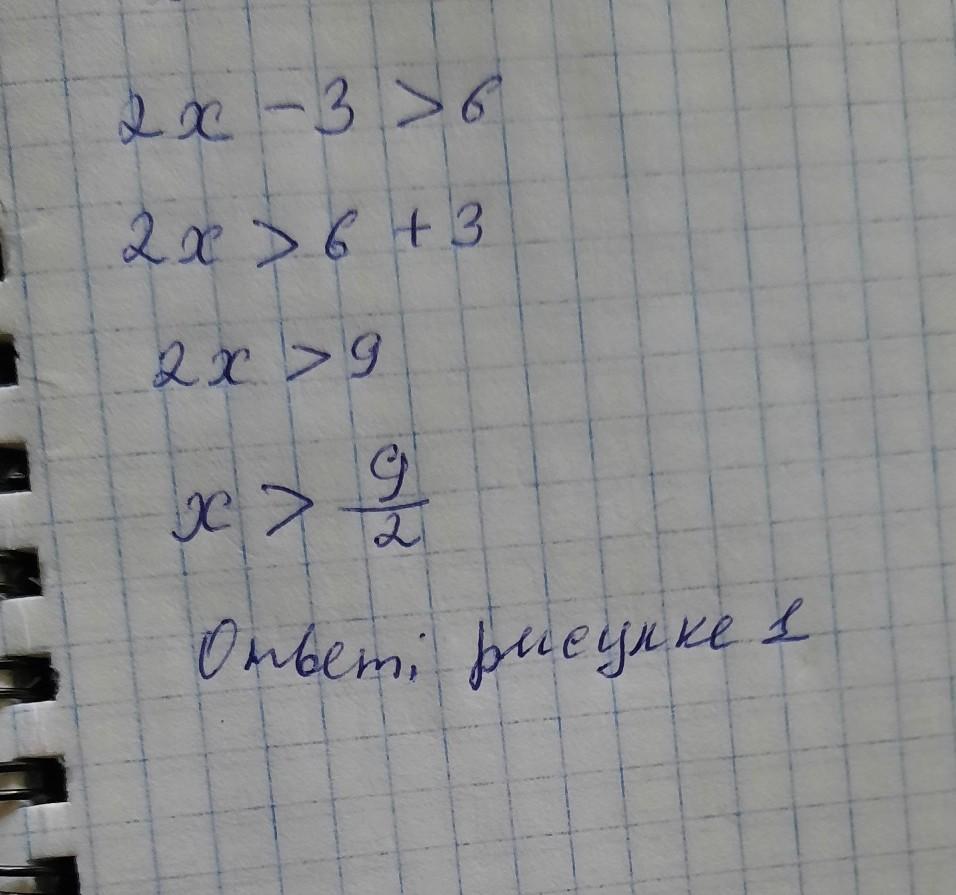 2x - 3 > 6
2x > 6 + 3
2x > 9
x > 9/2
Ответ: рисунке 1